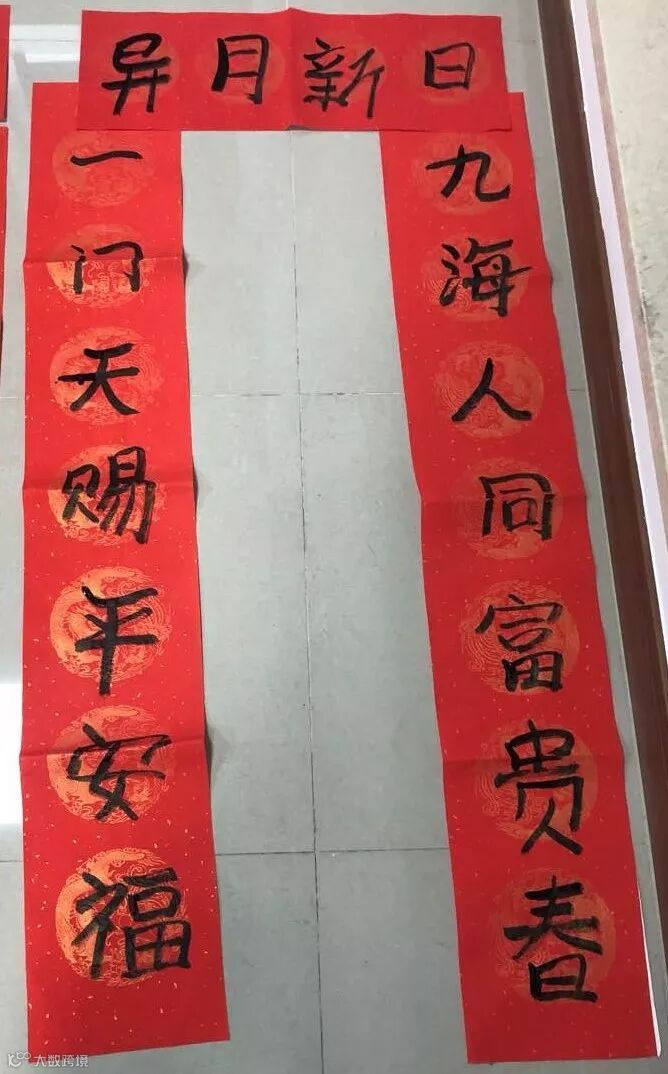 日新月异
九海人同富贵春
一门天赐平安福
大数跨境